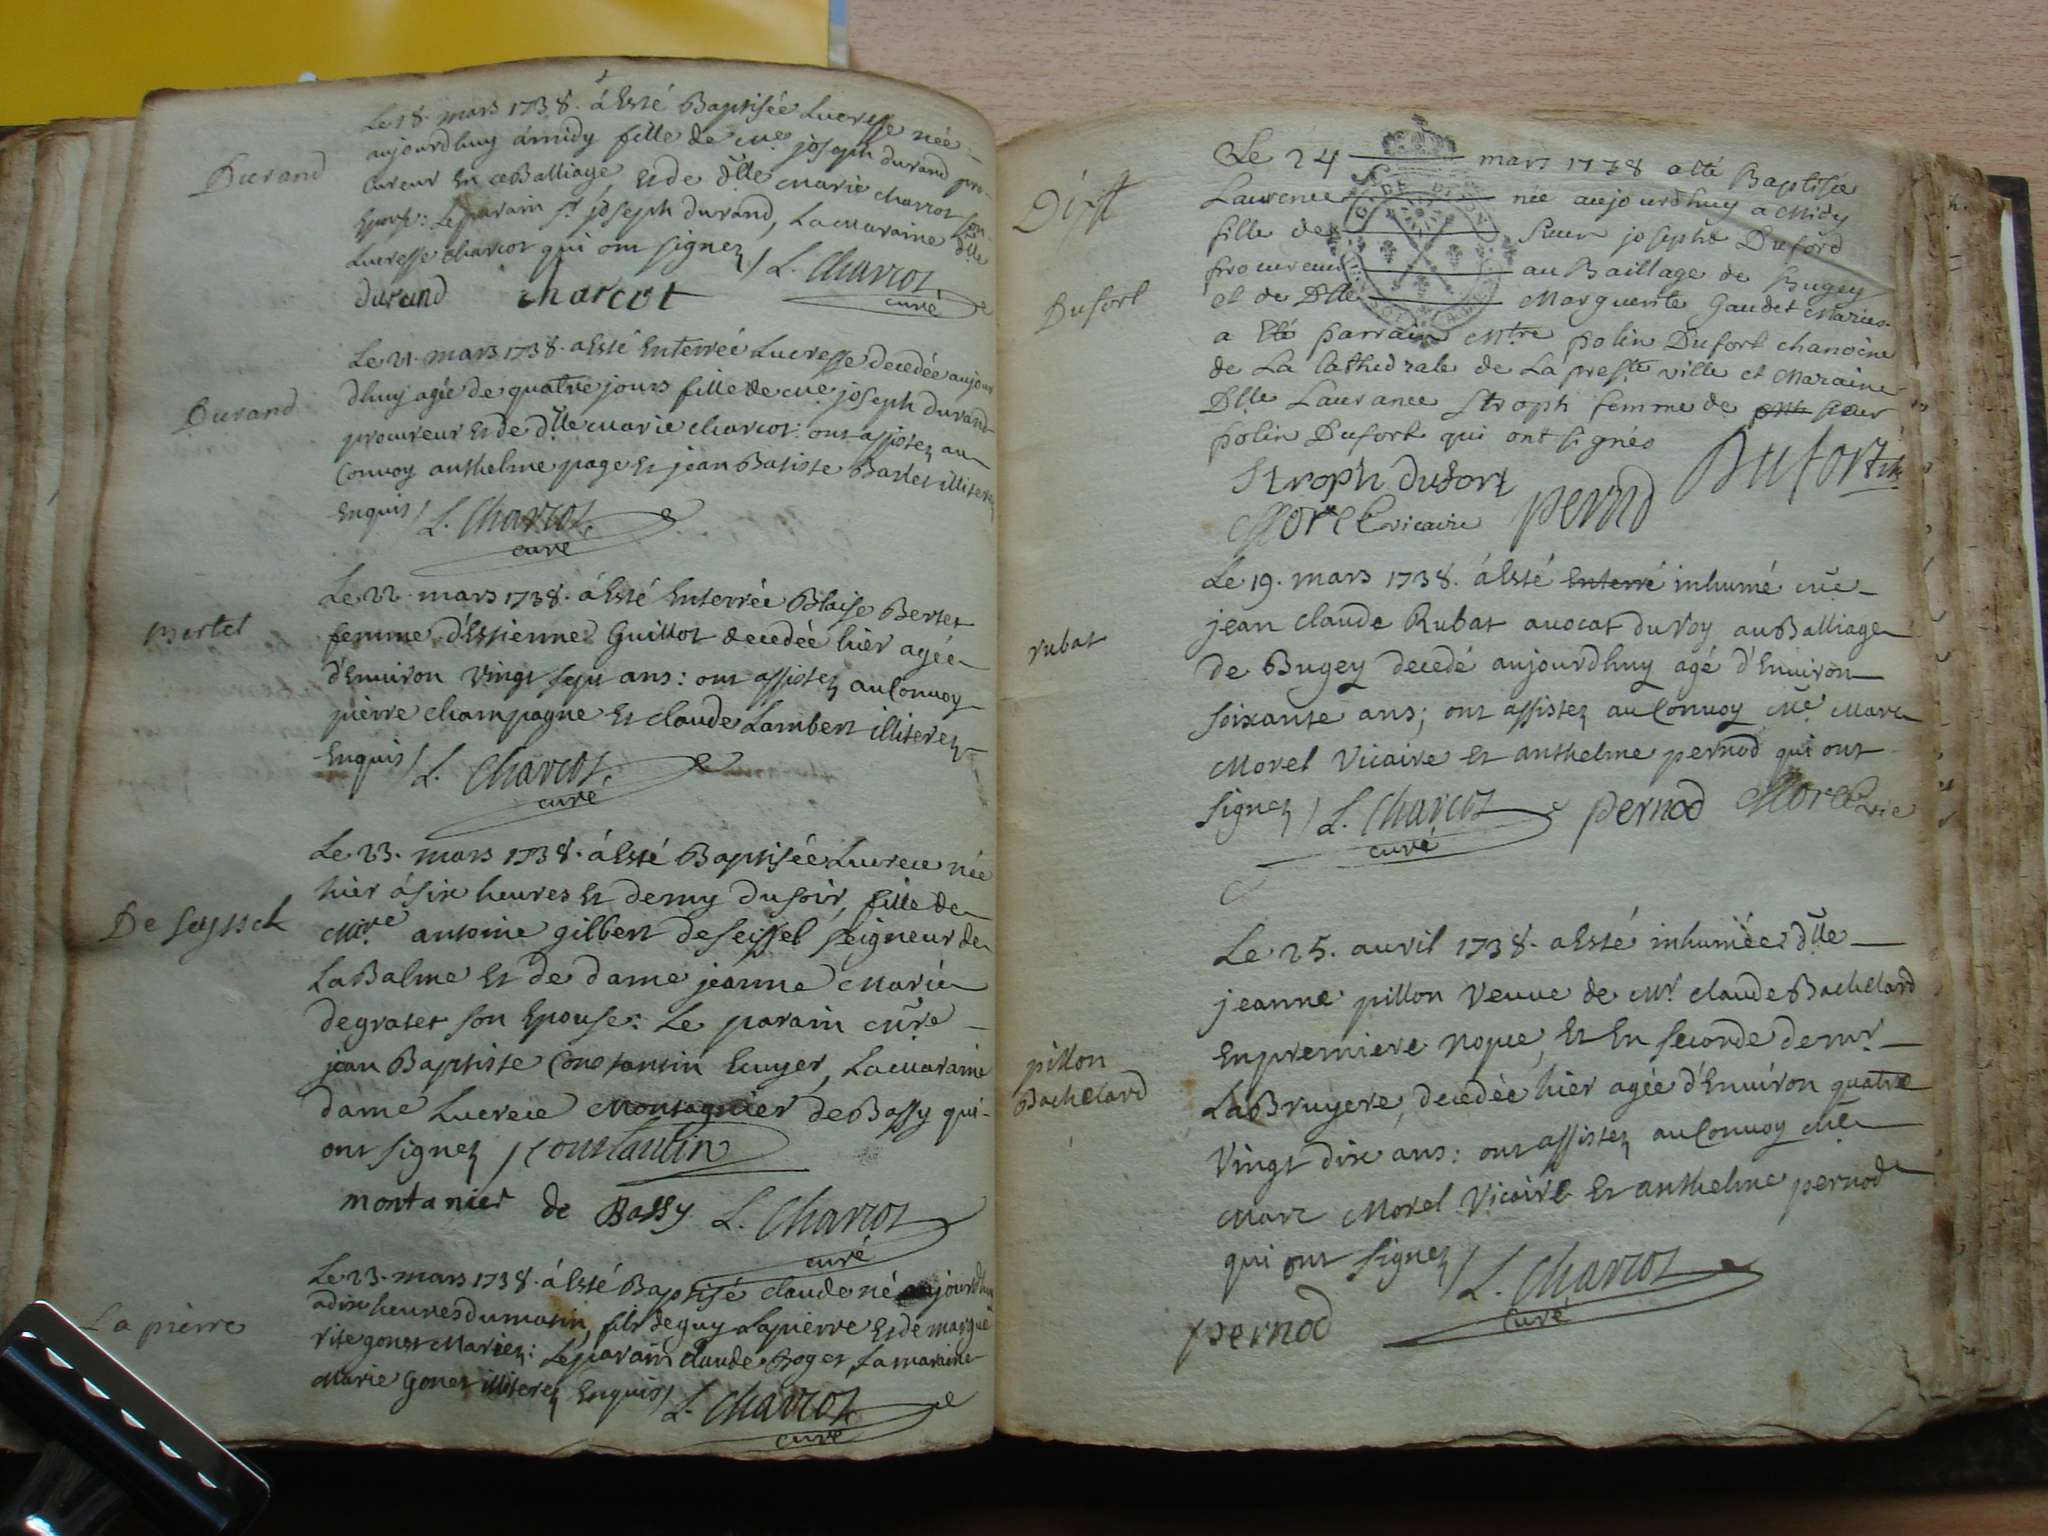 Durand
Le 18. mars 1738. á Esté Baptisée Lucresse née
aujourdhuy ámidy fille de me. joseph durand pro-
cureur En ce Balliage, Et de dlle Marie Charcot son
Epouse: Le parain sr. joseph durand, La Maraine dlle
Lucresse Charcot qui ont signez / L. Charcot,
durand charcot curé
Durand
Le 21. mars 1738. a Esté Enterrée Lucresse decedée aujour
dhuy agée de quatre jours fille de me joseph durand
procureur Et de dlle Marie Charcot: ont assistez au
Convoy anthelme page Et jean Batiste Barlet illiterez
Enquis / L. Charcot,
curé
Bertet
Le 22. mars 1738. á Esté Enterrée Blaise Bertet
femme d'Estienne Guillot decedée hier agée
d'Environ vingt sept ans: ont assistez au Convoy
pierre Champagne Et Claude Lambert illiterez
Enquis / L. Charcot,
curé
De Seyssel
Le 23. mars 1738. á Esté Baptisée Lucrece née
hier á six heures Et demy du soir, fille de
Mire antoine gilbert de Seissel seigneur de
La Balme Et de dame jeanne Marie
degratet son Epouse: Le parain Mre
jean Baptiste Constantin Ecuyer, La Maraine
dame Lucrece Montagnier de Bassy qui
ont signez / Constantin
montanier de Bassy L. Charcot
curé
La pierre
Le 23. mars 1738. á Esté Baptisé Claude né aujourdhuy
a dix heures du matin, fils de guy Lapierre Et de margue
rite gonet Mariez: Le parain Claude Roget, La maraine
Marie Gonet illiterez Enquis / L. Charcot,
curé
Le 24 mars 1738 a été Baptisée
Laurence née aujourdhuy a Midy
fille de Sieur joseph Duford
procureur au Baillage de Bugey
Dufort
et de Dlle Marguerite Gaudet Mariez
a Eté parrain Mtre polin Dufort chanoine
de La Cathedrale de La preste ville et Maraine
Dlle Laurance Stroph femme de sieur
polin Dufort qui ont signés
Stroph dufort Dufort
Morel vicaire pernod
rubat
Le 19. mars 1738. á Esté Enterré inhumé me
jean Claude Rubat avocat du Roy au Balliage
de Bugey decedé aujourdhuy agé d'Environ
soixante ans; ont assistez au Convoy Me Marc
Morel Vicaire Et anthelme pernod qui ont
signez / L. Charcot pernod Morel vic
curé
Le 25. avril 1738. a Esté inhumée dlle
jeanne pillon Veuve de Mr. Claude Bachelard
En premiere nopce, Et En seconde de mr.
pillon
Bachelard
La Bruyere, decedée hier agée d'Environ quatre
vingt dix ans: ont assistez au Convoy Me
Marc Morel Vicaire Et anthelme pernod
qui ont signez / L. Charcot
curé
pernod